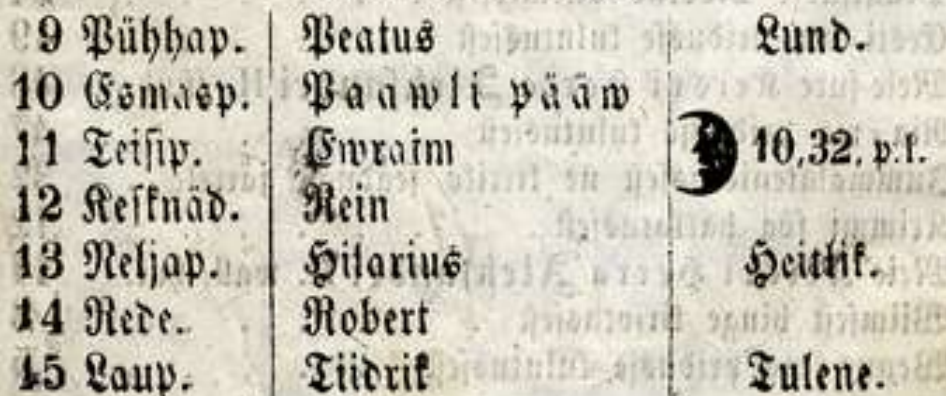 9 Pühhap. Peatus Lund.
10 Esmasp. Paawli pääw
11 Teisip. Ewraim 10,32, p.l.
12 Kesknäd. Rein
13 Neljap. Hilarius Heitlik.
14 Rede. Robert
15 Laup. Tiidrik Tulene.